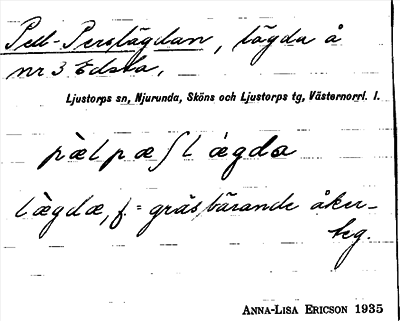 Pell-Perslägdan, lägda å
nr 3 Edsta,
Ljustorps sn, Njurunda, Sköns och Ljustorps tg, Västernorrl. l.
pæ̀l pæʃlǽgda
lǽgdæ, f. = gräsbärande åker-
teg.
ANNA-LISA ERICSON 1935